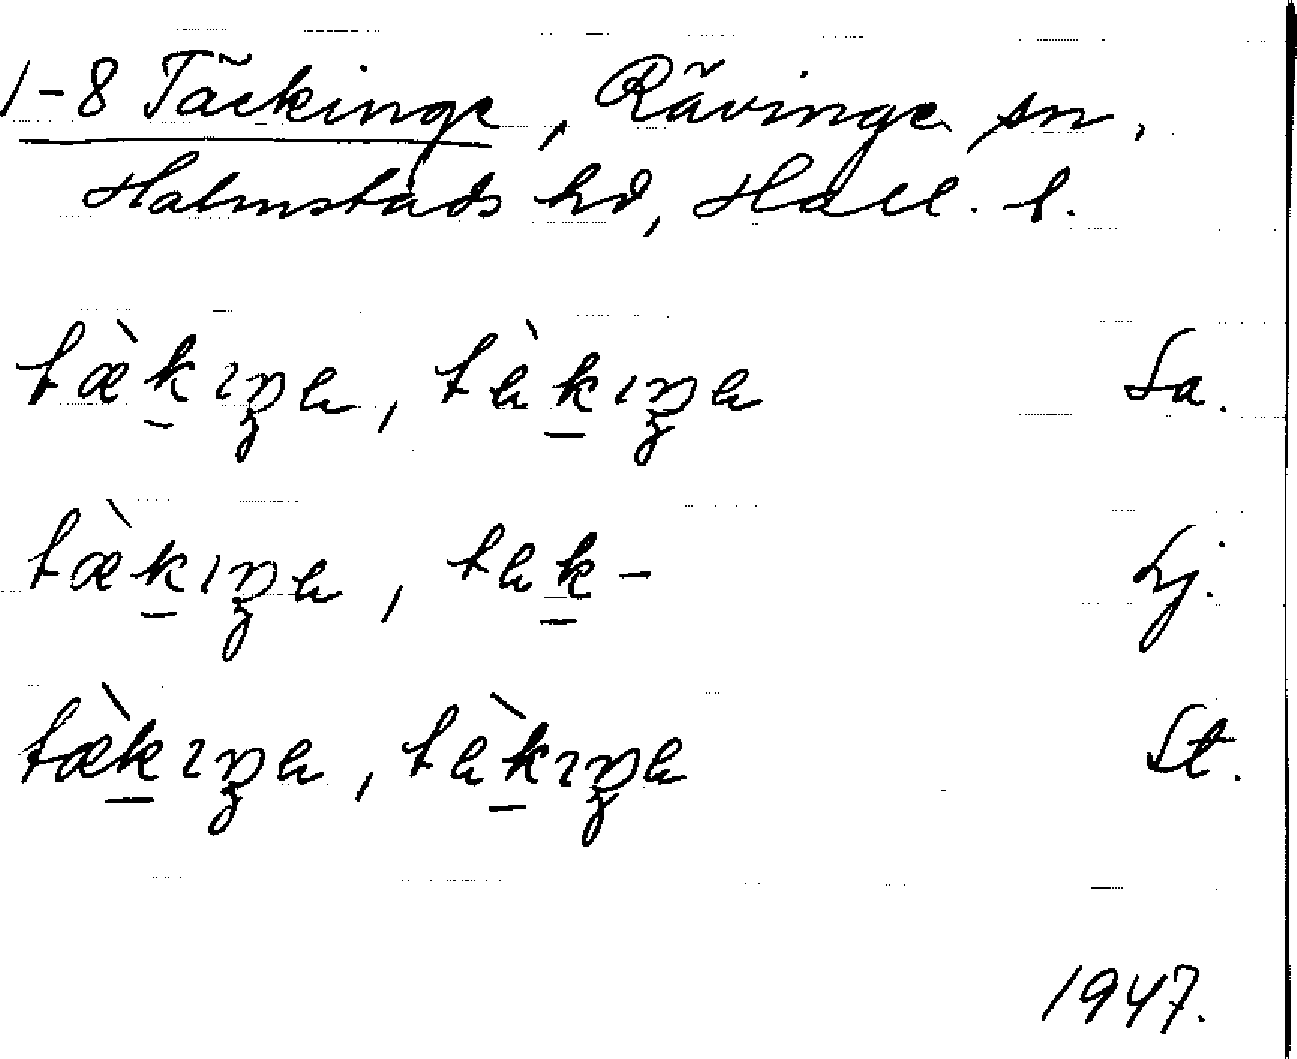 1-8 Täckinge, Rävinge sn,
Halmstads hd, Hall. l.
tæ̀k̲ıŋɐ, tɐ̀k̲ıŋɐ Sa.
tæ̀k̲ıŋɐ, tɐk̲- Lj.
tæ̀k̲ıŋɐ, tɐ̀k̲ıŋɐ St.
1947.